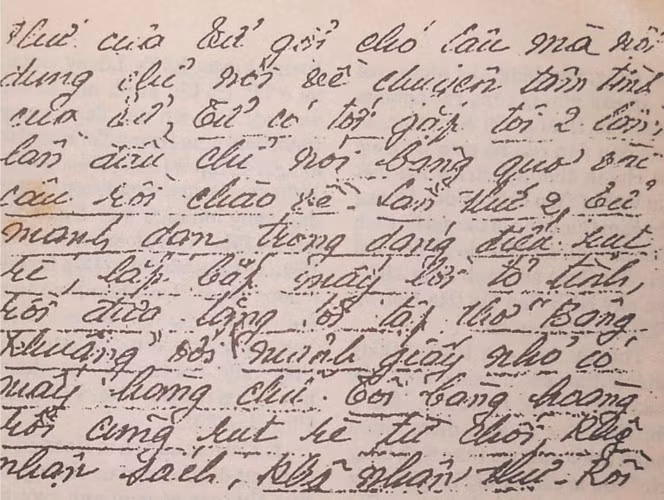 Thư của Cử gởi cho Cầu mà nội
dung chỉ nói về chuyện tâm tình
của Cử, Cử có tới gặp tôi 2 lần,
lần đầu chỉ nói bâng quơ vài
câu rồi chào về. Lần thứ 2, Cử
mạnh dạn trong dáng điệu rụt
rè, lắp bắp mấy lời tỏ tình,
rồi đưa tặng tôi tập thơ "Bâng
Khuâng" với mảnh giấy nhỏ có
mấy hàng chữ. Tôi bàng hoàng
rồi cũng rụt rè từ chối, khg
nhận sách, khg nhận thư. Rồi